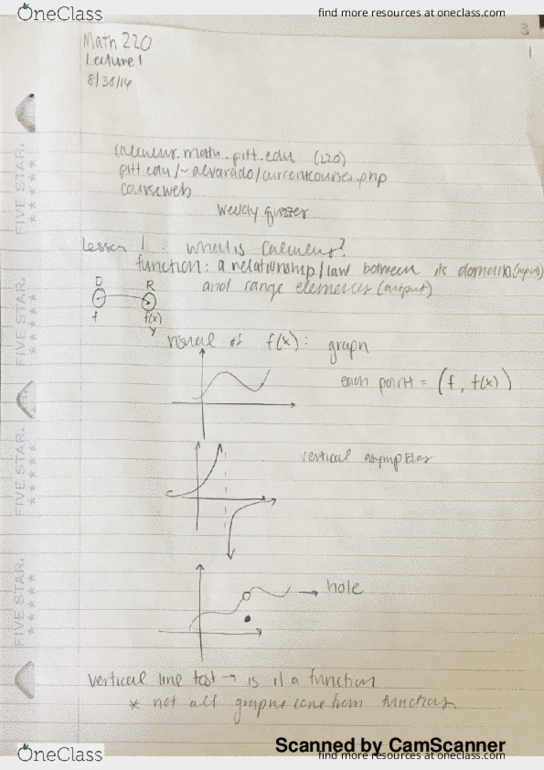 OneClass find more resources at oneclass.com
3
Math 220
1
Lecture 1
8/30/16
calculus.math.pitt.edu (220)
pitt.edu/~alvarado/currentcourses.php
courseweb
weekly quizzes
Lesson 1: what is Calculus?
function: a relationship/law between its domain (inputs)
and range elements (output)
D R
f f(x)
y
visual of f(x): graph
each point = (f, f(x))
vertical asymptotes
→ hole
vertical line test → is it a function
* not all graphs come from functions
FIVE STAR.
FIVE STAR.
FIVE STAR.
FIVE STAR.
Scanned by CamScanner
OneClass find more resources at oneclass.com